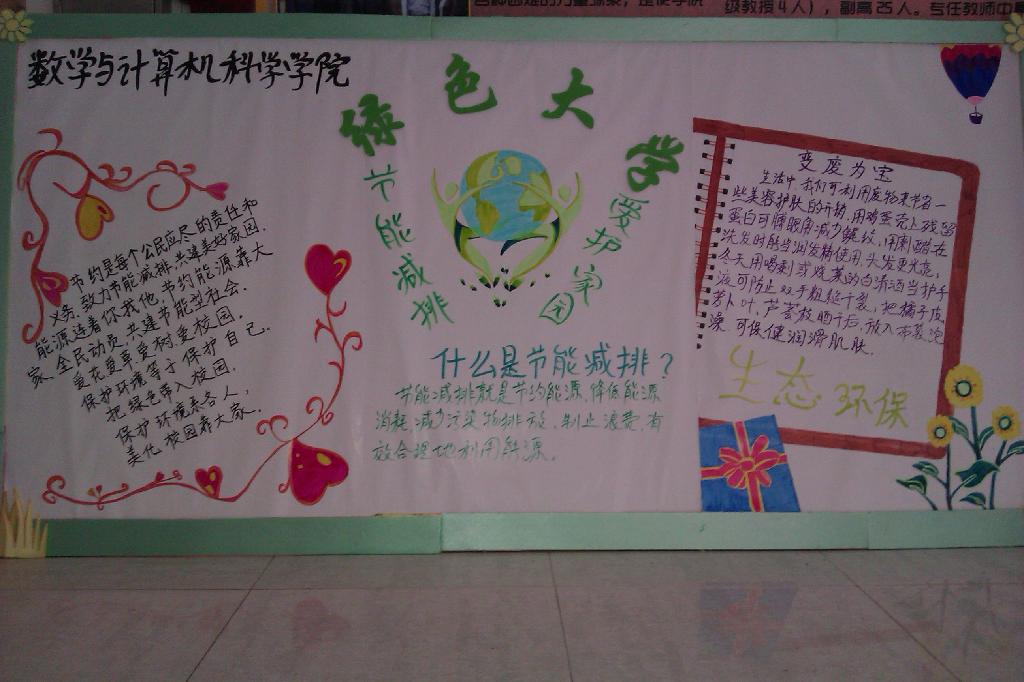 级教授4人），副高25人。专任教师中
数学与计算机科学学院
绿色大学
节能减排
爱护家园
节约是每个公民应尽的责任和
义务．致力节能减排，共建美好家园．
能源连着你我他，节约能源靠大
家．全民动员，共建节能型社会．
爱花爱草爱树爱校园．
保护环境等于保护自己．
把绿色带入校园．
保护环境系各人，
美化校园靠大家．
什么是节能减排？
节能减排就是节约能源．降低能源
消耗．减少污染物排放．制止浪费．有
效合理地利用能源．
变废为宝
生活中，我们可利用废物来节省一
些美容护肤的开销．用鸡蛋壳上残留
蛋白可搏眼角减少皱纹，用剩醋在
洗发时能当润发精使用．头发更光亮．
冬天用喝剩或烧菜的白清酒当护手
液可防止双手粗糙干裂，把橘子皮．
萝卜叶，芦荟枝晒干后．放入布袋泡
澡可保健润滑肌肤．
生态环保